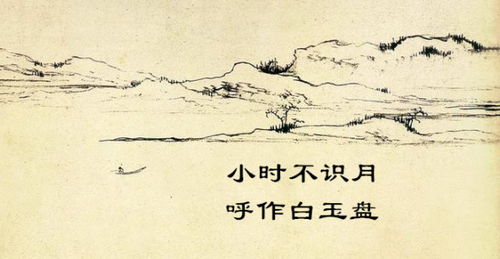 小时不识月
呼作白玉盘